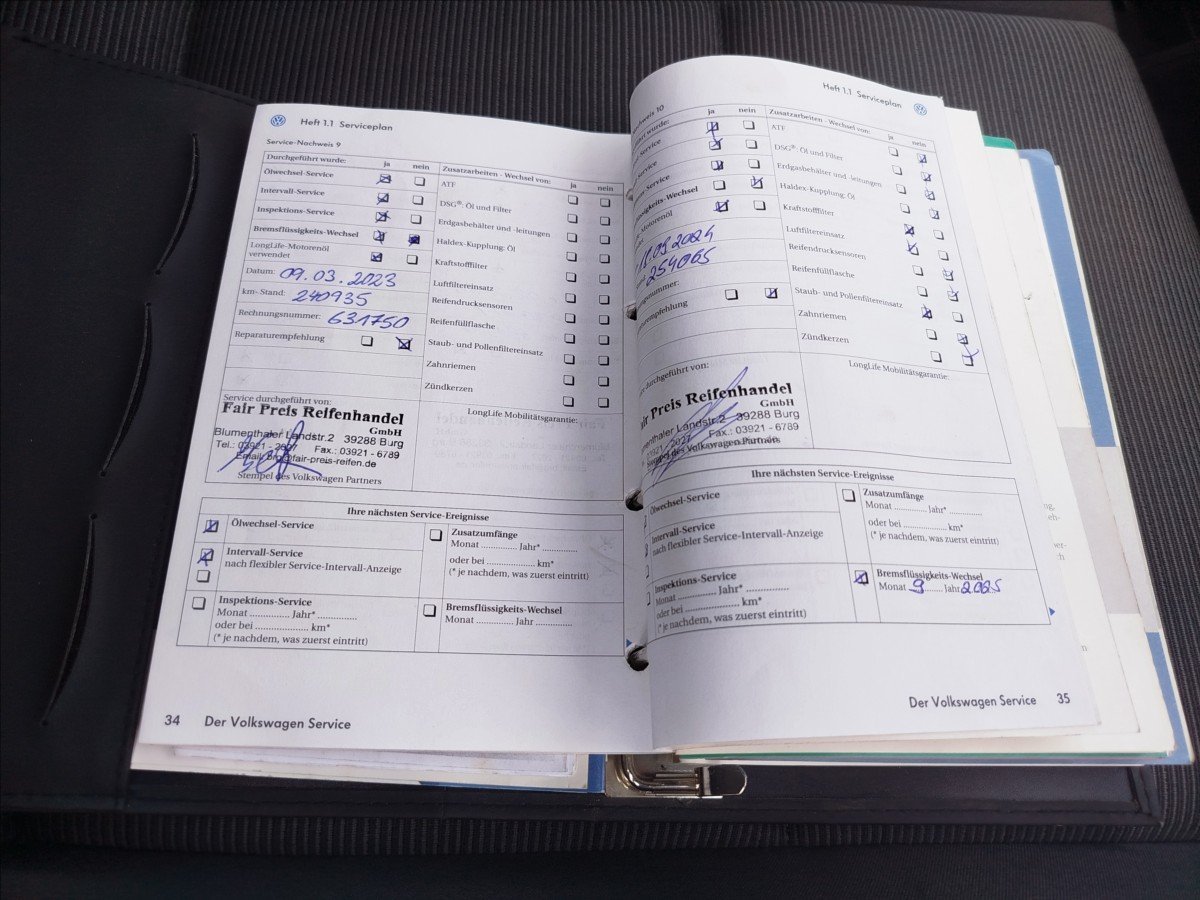 Heft 1.1 Serviceplan
Service-Nachweis 9
Durchgeführt wurde: ja nein
Ölwechsel-Service
Intervall-Service
Inspektions-Service
Bremsflüssigkeits-Wechsel
LongLife-Motorenöl
verwendet
Datum: 09.03.2023
km-Stand: 240935
Rechnungsnummer: 631750
Reparaturempfehlung
Zusatzarbeiten - Wechsel von: ja nein
ATF
DSG®: Öl und Filter
Erdgasbehälter und -leitungen
Haldex-Kupplung: Öl
Kraftstofffilter
Luftfiltereinsatz
Reifendrucksensoren
Reifenfüllflasche
Staub- und Pollenfiltereinsatz
Zahnriemen
Zündkerzen
Service durchgeführt von:
Fair Preis Reifenhandel
GmbH
Blumenthaler Landstr.2 39288 Burg
Tel.: 03921 - Fax.: 03921 - 6789
Email: brg@fair-preis-reifen.de
Stempel des Volkswagen Partners
LongLife Mobilitätsgarantie:
Ihre nächsten Service-Ereignisse
Ölwechsel-Service
Intervall-Service
nach flexibler Service-Intervall-Anzeige
Inspektions-Service
Monat .............. Jahr* ..............
oder bei .................... km*
(* je nachdem, was zuerst eintritt)
Zusatzumfänge
Monat ............. Jahr* .............
oder bei .................... km*
(* je nachdem, was zuerst eintritt)
Bremsflüssigkeits-Wechsel
Monat .............. Jahr ..............
34 Der Volkswagen Service
Heft 1.1 Serviceplan
10
wurde: ja nein
Service
Service
Service
Wechsel
Motorenöl
.09.2024
254065
Zusatzarbeiten - Wechsel von: ja nein
ATF
DSG®: Öl und Filter
Erdgasbehälter und -leitungen
Haldex-Kupplung: Öl
Kraftstofffilter
Luftfiltereinsatz
Reifendrucksensoren
Reifenfüllflasche
Staub- und Pollenfiltereinsatz
Zahnriemen
Zündkerzen
durchgeführt von:
Preis Reifenhandel
GmbH
Landstr.2 39288 Burg
Fax.: 03921 - 6789
des Volkswagen Partners
LongLife Mobilitätsgarantie:
Ihre nächsten Service-Ereignisse
Ölwechsel-Service
Intervall-Service
nach flexibler Service-Intervall-Anzeige
Inspektions-Service
Monat .............. Jahr* ..............
oder bei .................... km*
(* je nachdem, was zuerst eintritt)
Zusatzumfänge
Monat ............. Jahr* .............
oder bei .................... km*
(* je nachdem, was zuerst eintritt)
Bremsflüssigkeits-Wechsel
Monat 9 Jahr 2025
Der Volkswagen Service 35